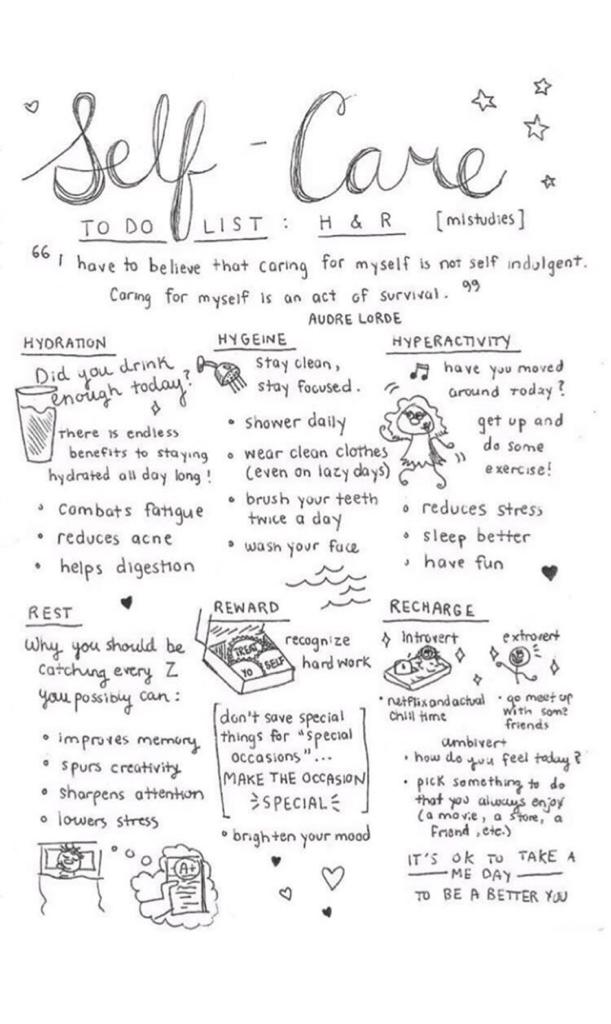 Self-Care
TO DO LIST: H & R [mlstudies]
"I have to believe that caring for myself is not self indulgent.
Caring for myself is an act of survival."
AUDRE LORDE
HYDRATION
Did you drink
enough today?
There is endless
benefits to staying
hydrated all day long!
• combats fatigue
• reduces acne
• helps digestion
HYGEINE
stay clean,
stay focused.
• shower daily
• wear clean clothes
(even on lazy days)
• brush your teeth
twice a day
• wash your face
HYPERACTIVITY
have you moved
around today?
get up and
do some
exercise!
• reduces stress
• sleep better
• have fun
REST
Why you should be
catching every Z
you possibly can:
• improves memory
• spurs creativity
• sharpens attention
• lowers stress
A+
REWARD
TREAT
YO SELF
recognize
hard work
[don't save special
things for "special
occasions"...
MAKE THE OCCASION
SPECIAL]
• brighten your mood
RECHARGE
introvert
• netflix and actual
chill time
extrovert
• go meet up
with some
friends
ambivert
• how do you feel today?
• pick something to do
that you always enjoy
(a movie, a store, a
friend, etc.)
IT'S OK TO TAKE A
ME DAY
TO BE A BETTER YOU